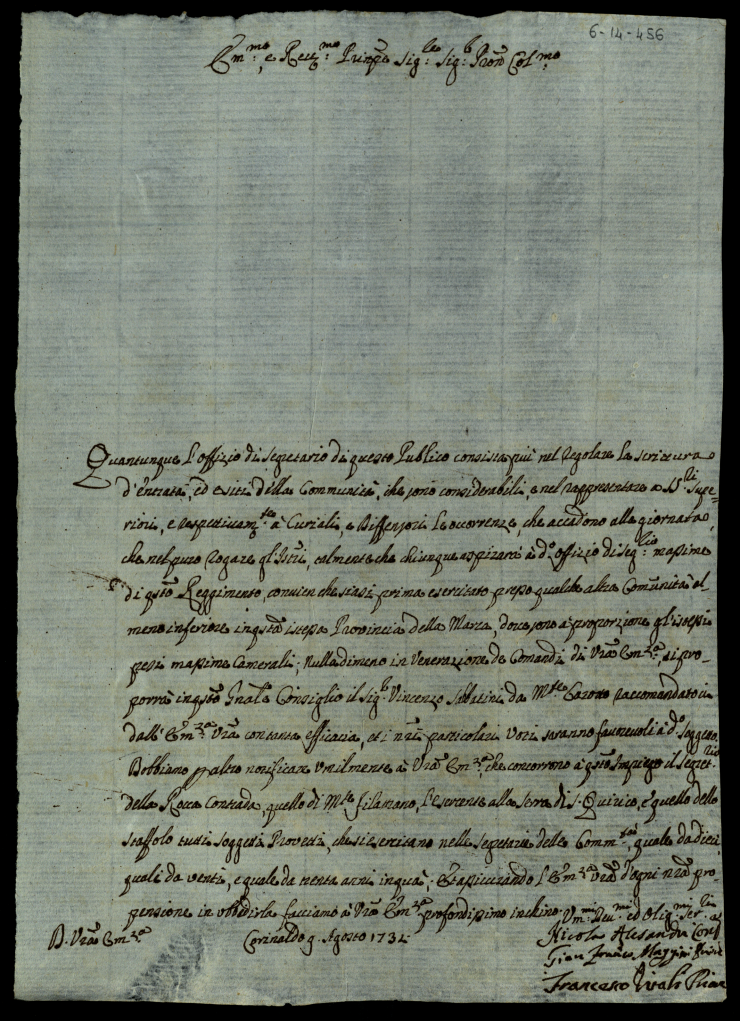 6-14-456
Em:mo, e Rev:mo Prinpe Sig:le Sig:r Pron Col:mo
Quantunque l'offizio di Segretario di questo Publico consista più nel regolare la scrittura
d'entrata, ed esiti della Communità, che sono considerabili, e nel rappresentare a SS:ri Supe-
riori, e respettivam:te à Curiali, e Diffensori le occorrenze, che accadono alla giornata,
che nel puro rogare gl'Istri, talmente che chiunque aspirarà à do offizio di Seg:rio massime
di qsto Reggimento, convien che siasi prima esercitato presso qualche altra Comunità al-
meno inferiore in qsta istessa Provincia della Marca, dove sono à proporzione gl'istessi
pesi massime Camerali; Nulladimeno in venerazione de Comandi di Vra Em:za, si pro-
porrà in qsto Gnale Consiglio il Sig:r Vincenzo Sabbatini da M:te Carotto raccomandatoci
dall'Em:za Vra con tanta efficacia, et i nri particolari voti saranno favorevoli à do Soggetto.
Dobbiamo p altro notificare umilmente à Vra Em:za, che concorrono à qsto Impiego il Segret:rio
della Rocca Contrada, quello di M:te Filatrano, l'esercente alla Serra di S. Quirico, e quello dello
Staffolo tutti soggetti Provetti, che si esercitano nelle segretarie delle Comm:tà, quale da dieci
quali da venti, e quale da trenta anni in quà; Et assicurando l'Em:za Vra d'ogni nra pro-
pensione in obbedirla facciamo à Vra Em:za profondissimo inchino.
Um:mi Dev:mi ed Oblig:mi Ser:ri
D. Vra Em:za
Corinaldo 9. Agosto 1734
Nicola Alesandri Conf
Gian Franco Mazzini
Francesco Vitali Prior